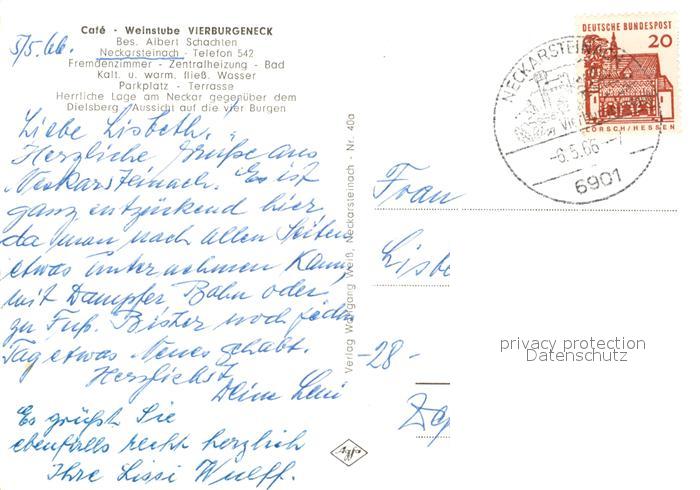 Café - Weinstube VIERBURGENECK
Bes. Albert Schachten
Neckarsteinach - Telefon 542
Fremdenzimmer - Zentralheizung - Bad
Kalt. u. warm. fließ. Wasser
Parkplatz - Terrasse
Herrliche Lage am Neckar gegenüber dem
Dielsberg / Aussicht auf die vier Burgen
5/5. 66.
Liebe Lisbeth.
Herzliche Grüße aus
Neckarsteinach. Es ist
ganz entzückend hier,
da man nach allen Seiten
etwas unternehmen kann,
mit Dampfer Bahn oder
zu Fuß. Bisher noch jeden
Tag etwas Neues gehabt.
Herzlichst
Deine Leni
Es grüßt Sie
ebenfalls recht herzlich
Ihre Lissi Wulff.
Verlag Wolfgang Weiß, Neckarsteinach - Nr. 40a
DEUTSCHE BUNDESPOST
20
LORSCH/HESSEN
NECKARSTEINACH
-6.5.66.-7
6901
Frau
Lisbe
-28-
Agfa
privacy protection
Datenschutz